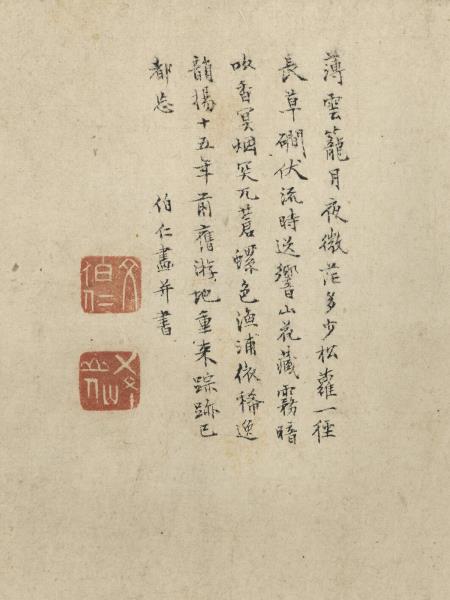 薄雲籠月夜微茫多少松蘿一種
長草磵伏流時送響山花藏霧暗
吹香冥烟突兀蒼螺色漁浦依稀逸
韻揚十五年前舊游地重来踪跡已
都忘　伯仁畫并書
文伯仁